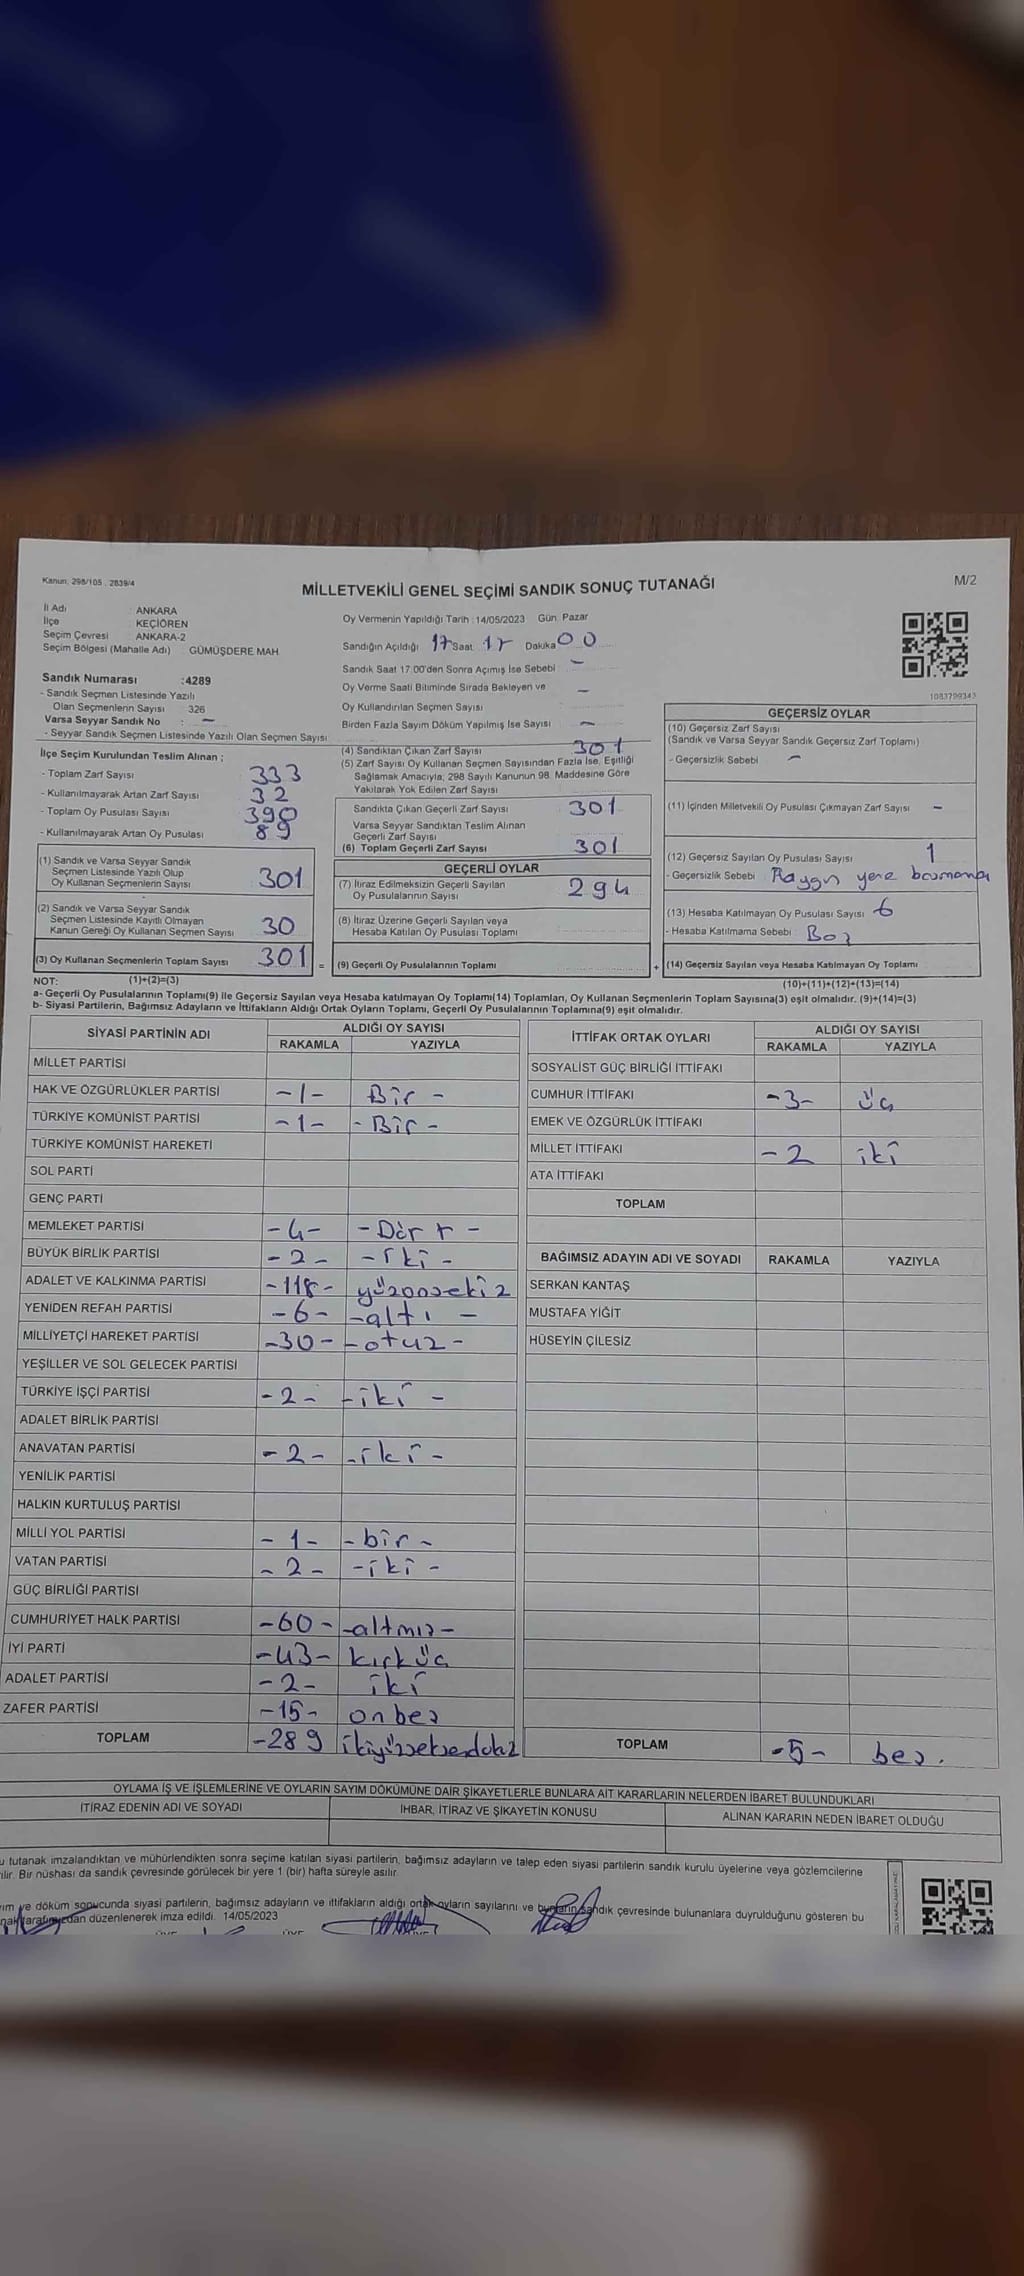 Kanun: 298/105 , 2839/4
MİLLETVEKİLİ GENEL SEÇİMİ SANDIK SONUÇ TUTANAĞI
M/2
İl Adı : ANKARA
İlçe : KEÇİÖREN
Seçim Çevresi : ANKARA-2
Seçim Bölgesi (Mahalle Adı) : GÜMÜŞDERE MAH
Sandık Numarası :4289
- Sandık Seçmen Listesinde Yazılı
Olan Seçmenlerin Sayısı : 326
Varsa Seyyar Sandık No : -
- Seyyar Sandık Seçmen Listesinde Yazılı Olan Seçmen Sayısı :
Oy Vermenin Yapıldığı Tarih : 14/05/2023 Gün: Pazar
Sandığın Açıldığı 17 Saat 17 Dakika 00
Sandık Saat 17.00'den Sonra Açımış İse Sebebi -
Oy Verme Saati Bitiminde Sırada Bekleyen ve
Oy Kullandırılan Seçmen Sayısı -
Birden Fazla Sayım Döküm Yapılmış İse Sayısı -
1083799343
İlçe Seçim Kurulundan Teslim Alınan :
- Toplam Zarf Sayısı 333
- Kullanılmayarak Artan Zarf Sayısı 32
- Toplam Oy Pusulası Sayısı 390
- Kullanılmayarak Artan Oy Pusulası 89
(1) Sandık ve Varsa Seyyar Sandık
Seçmen Listesinde Yazılı Olup
Oy Kullanan Seçmenlerin Sayısı 301
(2) Sandık ve Varsa Seyyar Sandık
Seçmen Listesinde Kayıtlı Olmayan
Kanun Gereği Oy Kullanan Seçmen Sayısı 30
(3) Oy Kullanan Seçmenlerin Toplam Sayısı 301 =
(1)+(2)=(3)
(4) Sandıktan Çıkan Zarf Sayısı 301
(5) Zarf Sayısı Oy Kullanan Seçmen Sayısından Fazla İse, Eşitliği
Sağlamak Amacıyla; 298 Sayılı Kanunun 98. Maddesine Göre
Yakılarak Yok Edilen Zarf Sayısı
Sandıkta Çıkan Geçerli Zarf Sayısı 301
Varsa Seyyar Sandıktan Teslim Alınan
Geçerli Zarf Sayısı
(6) Toplam Geçerli Zarf Sayısı 301
GEÇERLİ OYLAR
(7) İtiraz Edilmeksizin Geçerli Sayılan
Oy Pusulalarının Sayısı 294
(8) İtiraz Üzerine Geçerli Sayılan veya
Hesaba Katılan Oy Pusulası Toplamı
(9) Geçerli Oy Pusulalarının Toplamı +
GEÇERSİZ OYLAR
(10) Geçersiz Zarf Sayısı
(Sandık ve Varsa Seyyar Sandık Geçersiz Zarf Toplamı)
- Geçersizlik Sebebi -
(11) İçinden Milletvekili Oy Pusulası Çıkmayan Zarf Sayısı -
(12) Geçersiz Sayılan Oy Pusulası Sayısı 1
- Geçersizlik Sebebi yere
(13) Hesaba Katılmayan Oy Pusulası Sayısı 6
- Hesaba Katılmama Sebebi Boş
(14) Geçersiz Sayılan veya Hesaba Katılmayan Oy Toplamı
(10)+(11)+(12)+(13)=(14)
NOT:
a- Geçerli Oy Pusulalarının Toplamı(9) ile Geçersiz Sayılan veya Hesaba katılmayan Oy Toplamı(14) Toplamları, Oy Kullanan Seçmenlerin Toplam Sayısına(3) eşit olmalıdır. (9)+(14)=(3)
b- Siyasi Partilerin, Bağımsız Adayların ve İttifakların Aldığı Ortak Oyların Toplamı, Geçerli Oy Pusulalarının Toplamına(9) eşit olmalıdır.
SİYASİ PARTİNİN ADI ALDIĞI OY SAYISI
RAKAMLA YAZIYLA
MİLLET PARTİSİ
HAK VE ÖZGÜRLÜKLER PARTİSİ -1- Bir -
TÜRKİYE KOMÜNİST PARTİSİ -1- - Bir -
TÜRKİYE KOMÜNİST HAREKETİ
SOL PARTİ
GENÇ PARTİ
MEMLEKET PARTİSİ -4- -Dört-
BÜYÜK BİRLİK PARTİSİ -2- -iki-
ADALET VE KALKINMA PARTİSİ -118- yüzonsekiz
YENİDEN REFAH PARTİSİ -6- -altı -
MİLLİYETÇİ HAREKET PARTİSİ -30- -otuz-
YEŞİLLER VE SOL GELECEK PARTİSİ
TÜRKİYE İŞÇİ PARTİSİ -2- -iki -
ADALET BİRLİK PARTİSİ
ANAVATAN PARTİSİ -2- -iki-
YENİLİK PARTİSİ
HALKIN KURTULUŞ PARTİSİ
MİLLİ YOL PARTİSİ -1- -bir-
VATAN PARTİSİ -2- -iki-
GÜÇ BİRLİĞİ PARTİSİ
CUMHURİYET HALK PARTİSİ -60- -altmış-
İYİ PARTİ -43- kırküç
ADALET PARTİSİ -2- iki
ZAFER PARTİSİ -15- onbeş
TOPLAM -289 ikiyüzseksendokuz
İTTİFAK ORTAK OYLARI ALDIĞI OY SAYISI
RAKAMLA YAZIYLA
SOSYALİST GÜÇ BİRLİĞİ İTTİFAKI
CUMHUR İTTİFAKI -3- üç
EMEK VE ÖZGÜRLÜK İTTİFAKI
MİLLET İTTİFAKI -2 iki
ATA İTTİFAKI
TOPLAM
BAĞIMSIZ ADAYIN ADI VE SOYADI RAKAMLA YAZIYLA
SERKAN KANTAŞ
MUSTAFA YİĞİT
HÜSEYİN ÇİLESİZ
TOPLAM -5- beş.
OYLAMA İŞ VE İŞLEMLERİNE VE OYLARIN SAYIM DÖKÜMÜNE DAİR ŞİKAYETLERLE BUNLARA AİT KARARLARIN NELERDEN İBARET BULUNDUKLARI
İTİRAZ EDENİN ADI VE SOYADI İHBAR, İTİRAZ VE ŞİKAYETİN KONUSU ALINAN KARARIN NEDEN İBARET OLDUĞU
u tutanak imzalandıktan ve mühürlendikten sonra seçime katılan siyasi partilerin, bağımsız adayların ve talep eden siyasi partilerin sandık kurulu üyelerine veya gözlemcilerine
ilir. Bir nüshası da sandık çevresinde görülecek bir yere 1 (bir) hafta süreyle asılır.
ım ve döküm sonucunda siyasi partilerin, bağımsız adayların ve ittifakların aldığı ortak oyların sayılarını ve bunların sandık çevresinde bulunanlara duyrulduğunu gösteren bu
nak tarafımızdan düzenlenerek imza edildi. 14/05/2023